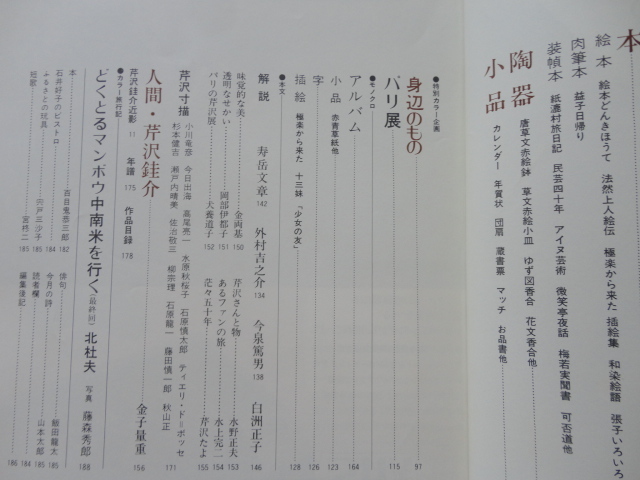 本
絵本 絵本どんきほうて 法然上人絵伝 極楽から来た 挿絵集 和染絵語 張子いろいろ
肉筆本 益子日帰り
装幀本 紙漉村旅日記 民芸四十年 アイヌ芸術 微笑亭夜話 梅若実聞書 可否道他
陶器 唐草文赤絵鉢 草文赤絵小皿 ゆず図香合 花文香合他
小品 カレンダー 年賀状 団扇 蔵書票 マッチ お品書他
●特別カラー企画
身辺のもの 97
パリ展 115
●モノクロ
アルバム 164
小品 赤青草紙他 123
字 126
挿絵 極楽から来た 十三妹 「少女の友」 128
●本文
解説 寿岳文章 142 外村吉之介 134 今泉篤男 138 白洲正子 146
味覚的な美 金両基 150 芹沢さんと物 水野正夫 153
透明なせかい 岡部伊都子 151 あるファンの旅 水上完二 154
パリの芹沢展 犬養道子 152 茫々五十年 芹沢たよ 155
芹沢寸描 小川竜彦 今日出海 高尾亮一 水原秋桜子 石原慎太郎 ティエリ・ド＝ボッセ
杉本健吉 瀬戸内晴美 佐治敬三 柳宗理 石原龍一 藤田慎一郎 秋山正 171
人間・芹沢銈介 金子量重 156
芹沢銈介近影 11 年譜 175 作品目録 178
●カラー旅行記
どくとるマンボウ中南米を行く(最終回) 北杜夫 写真 藤森秀郎 188
本 百目鬼恭三郎 182 俳句 飯田龍太 185
石井好子のビストロ 184 今月の詩 山本太郎 185
ふるさとの玩具 宍戸三沙子 185 読者欄 184
短歌 宮柊二 185 編集後記 186